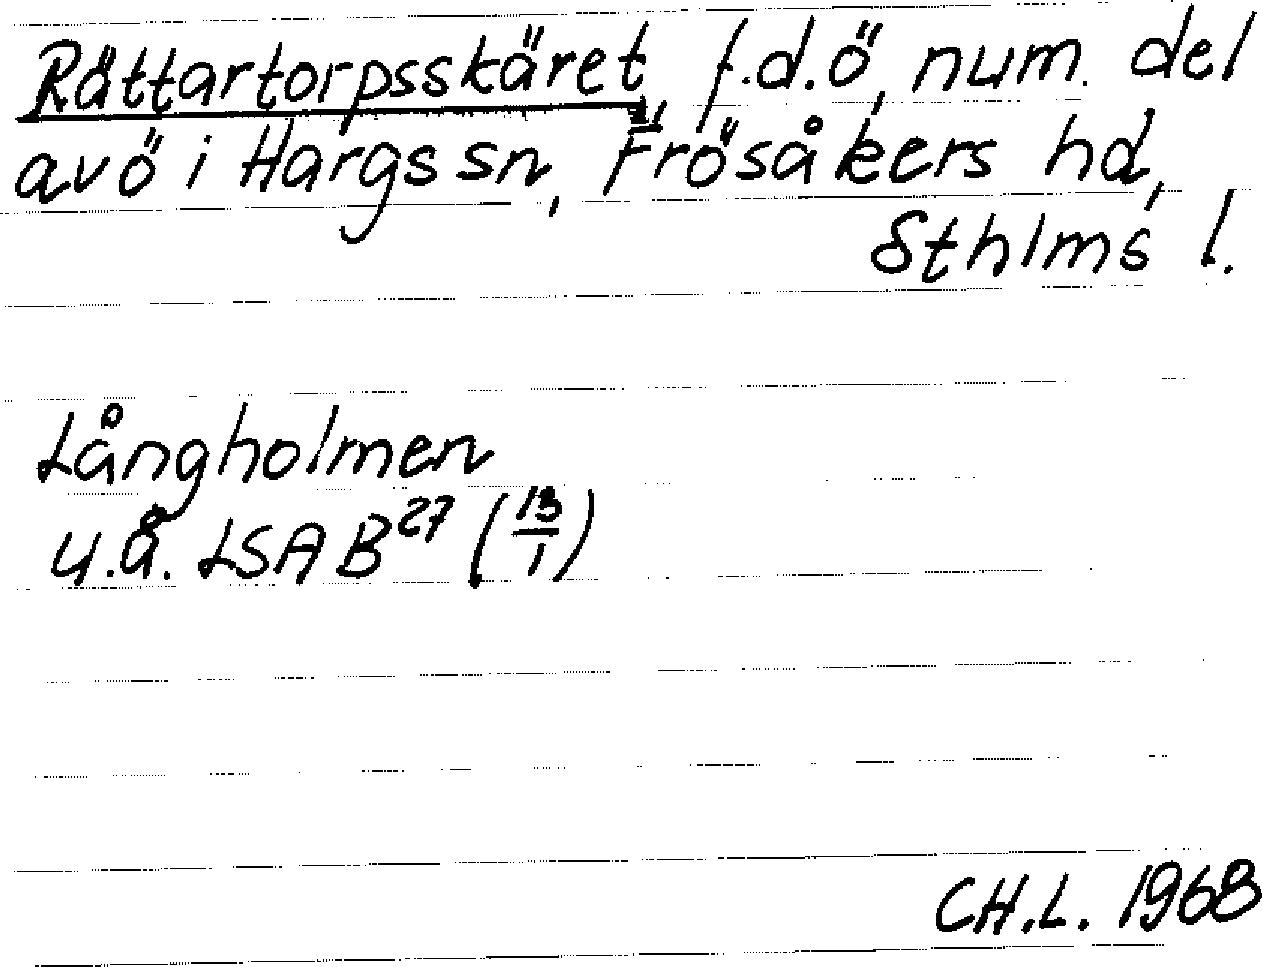 Rättartorpsskäret, f.d.ö, num. del
av ö i Hargs sn, Frösåkers hd,
Sthlms l.
Långholmen
u.å. LSA B27 (13/1)
CH.L. 1968